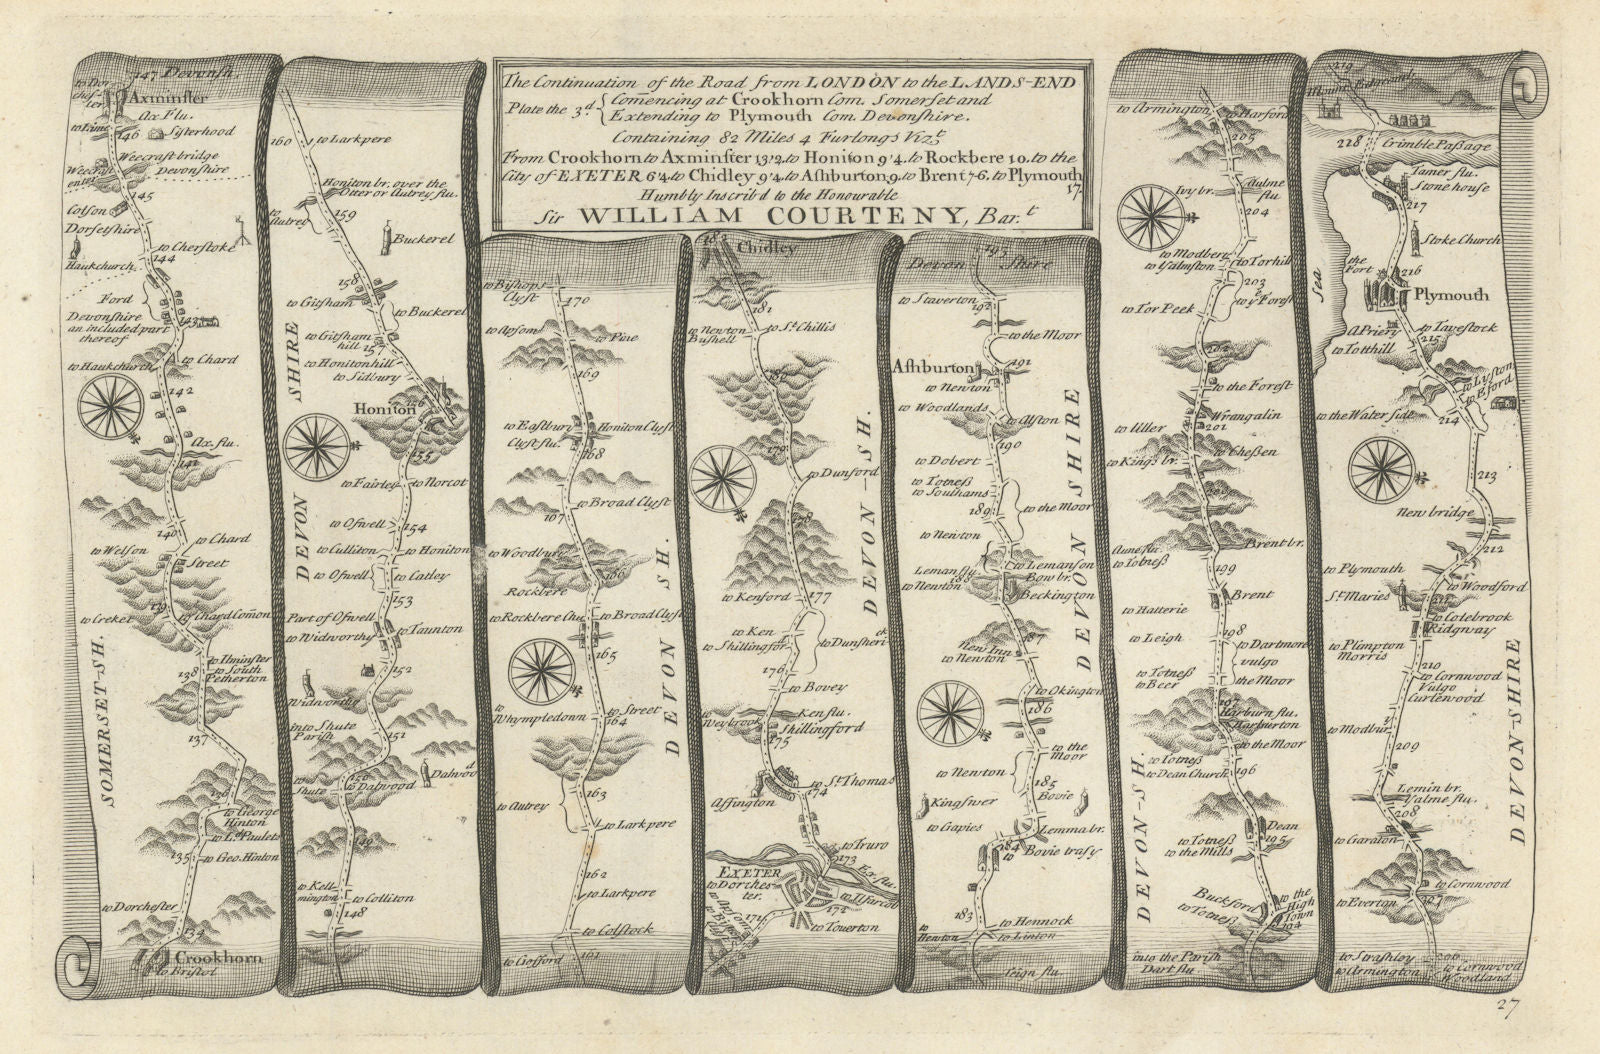 The Continuation of the Road from LONDON to the LANDS-END
Plate the 3.d Comencing at Crookhorn Com. Somerset and
Extending to Plymouth Com. Devonshire.
Containing 82 Miles 4 Furlongs Vizt
From Crookhorn to Axminster 13'2. to Honiton 9'4. to Rockbere 10. to the
City of EXETER 6'4. to Chidley 9'4. to Ashburton 9. to Brent 7-6. to Plymouth
17.
Humbly Inscrib'd to the Honourable
Sir WILLIAM COURTENY, Bar.t
147 Devonsh.
to Dor
chester
Axminster
Ax Flu.
to Lime
146
Sisterhood
Weecraft bridge
Devonshire
145
Colson
Dorsetshire
to Cherstoke
144
Haukchurch
Ford
Devonshire
an included part
thereof
143
to Chard
to Haukchurch
142
Ax. flu.
141
140
to Chard
to Welson
Street
139
to Creket
Chard Comon
to Ilminster
to South
Petherton
138
137
SOMERSET-SH.
136
to George
Hinton
to Ld. Paulets
135
to Geo. Hinton
to Dorchester
134
Crookhorn
to Bristol
160
to Larkpere
Honiton br. over the
Otter or Autrey flu.
to
Autrey
159
Buckerel
158
to Gitsham
to Buckerel
to Gitsham
hill
to Honitonhill
to Sidbury
156
Honiton
155
to Fairley
to Norcot
to Ofwell
154
to Culliton
to Honiton
to Ofwell
to Catley
153
Part of Ofwell
to Widworthy
to Taunton
152
Widworthy
into Shute
Parish
151
Dalwood
150
to
Shute
to Dalwood
149
to Kell
mington
to Colliton
148
DEVON SHIRE
to Bishops
Clyst
170
to Apsom
to Pine
169
to Eastbury
Honiton Clyst
Clyst flu.
168
to Broad Clyst
167
to Woodbury
166
Rockbere
to Rockbere Chu.
to Broad Clyst
165
to
Whympledown
to Street
164
163
to Autrey
to Larkpere
162
to Larkpere
to Colstock
to Gosford
161
DEVON SH.
182
Chidley
181
to Newton
Bushell
to St. Chillis
180
179
to Dunford
178
to Kenford
177
to Ken
to Shillingfor
to Dunsherick
176
to Bovey
Ken flu.
Weybrook
Shillingford
175
to St. Thomas
Affington
174
to Truro
173
Ex flu.
EXETER
to Dorches
ter.
to Ilfarcoo
172
to Towerton
171
DEVON-SH.
193
Devon Shire
to Staverton
192
to the Moor
Ashburton
191
to Newton
to Woodlands
to Alston
190
to Dobert
to Totness
to Southams
to the Moor
189
to Newton
Leman flu.
to Lemanson
188
Bow br.
to Newton
Beckington
187
New Inn
to Newton
to Okington
186
to the
Moor
to Newton
185
Kingswer
Bovie
to Gapies
Lemma br.
184
to
Bovie trasy
183
to Hennock
to
Newton
to Linton
Teign flu.
DEVON SHIRE
to Armington
to Harford
205
Ivy br.
Aulme
flu
204
to Modbery
to Yalmston
to Torhill
203
to ye Forest
to Tor Peek
202
to the Forest
Wrangalin
201
to Uller
to Kings br.
to Chessen
200
Brent br.
Aune flu.
to Totness
199
Brent
to Hatterie
198
to Leigh
to Dartmore
vulgo
the Moor
to Totness
to Beer
197
Harburn flu.
Harburton
to the Moor
to Totness
to Dean Church
196
Dean
to Totness
to the Mills
195
Buckford
to Totness
to the
High
Town
194
into the Parish
Dart flu
DEVON-SH.
219
Mount Edgcomb
218
Crimble Passage
Tamer flu.
Stone house
217
Stoke Church
the
Fort
216
Plymouth
Sea
A Priery
to Tavestock
215
to Totthill
to Lyston
to Eford
to the Water side
214
213
New bridge
212
to Plymouth
to Woodford
St. Maries
to Colebrook
Ridgway
to Plimpton
Morris
210
to Cornwood
Vulgo
Curlewood
to Modbury
209
Lemin br.
Yalme flu.
208
to Garaton
to Cornwood
to Everton
207
to Strashley
206
to Armington
to Cornwood
Woodland
DEVON-SHIRE
27